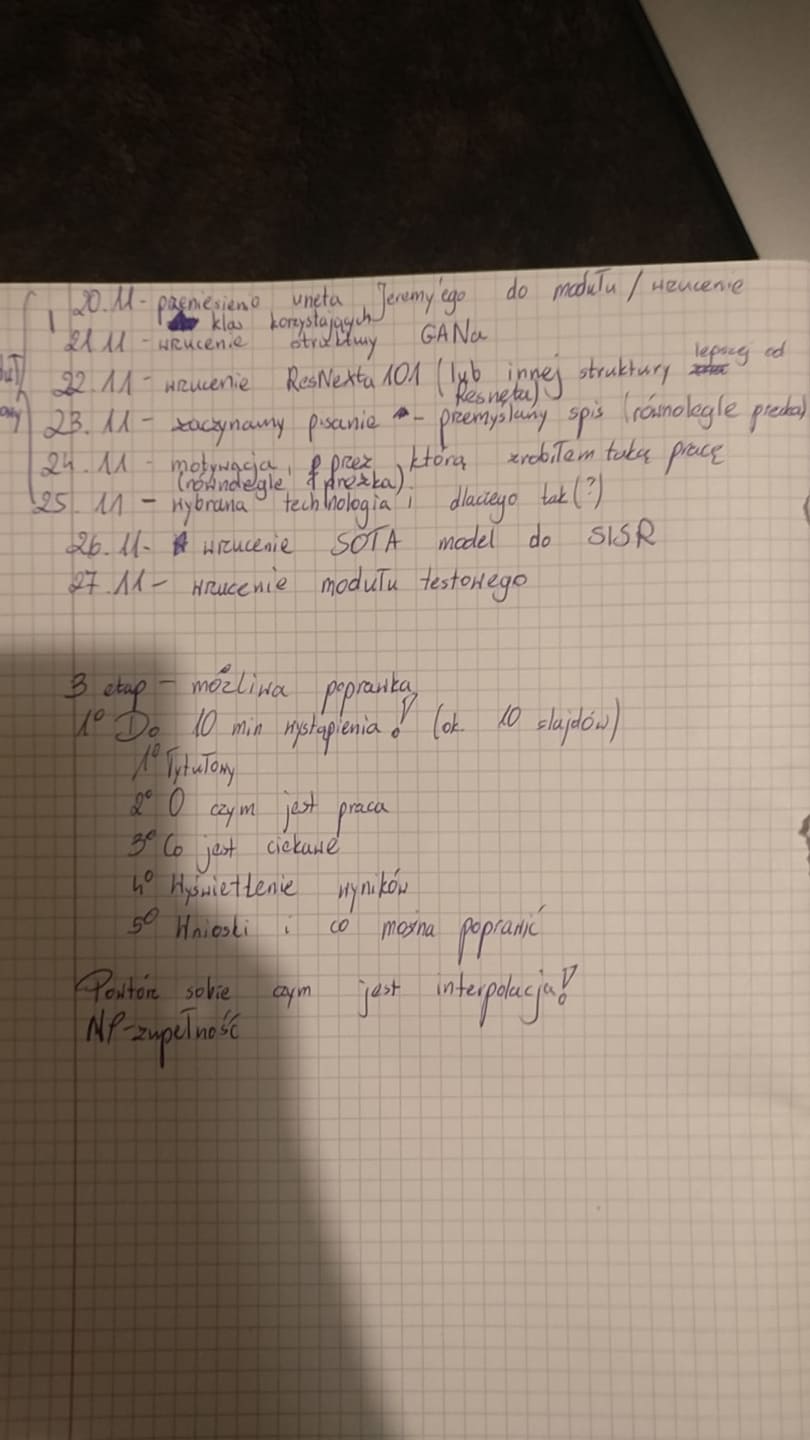 20.11 - przeniesieno uneta Jeremy'ego do modułu / wrzucenie
klas korzystających
21.11 - wrzucenie struktury GANa
22.11 - wrzucenie ResNexta 101 (lub innej struktury lepszej od
Resneta)
23.11 - zaczynamy pisanie - przemyślany spis (równolegle predka)
24.11 - motywacja, przez którą zrobiłem taką pracę
(równolegle)
25.11 - wybrana technologia i dlaczego tak (?)
26.11 - wrzucenie SOTA model do SISR
27.11 - wrzucenie modułu testowego
3 etap - możliwa poprawka
1° Do 10 min wystąpienia! (ok. 10 slajdów)
1° Tytułowy
2° O czym jest praca
3° Co jest ciekawe
4° Wyświetlenie wyników
5° Wnioski i co można poprawić
Powtórz sobie czym jest interpolacja!
NP-zupełność